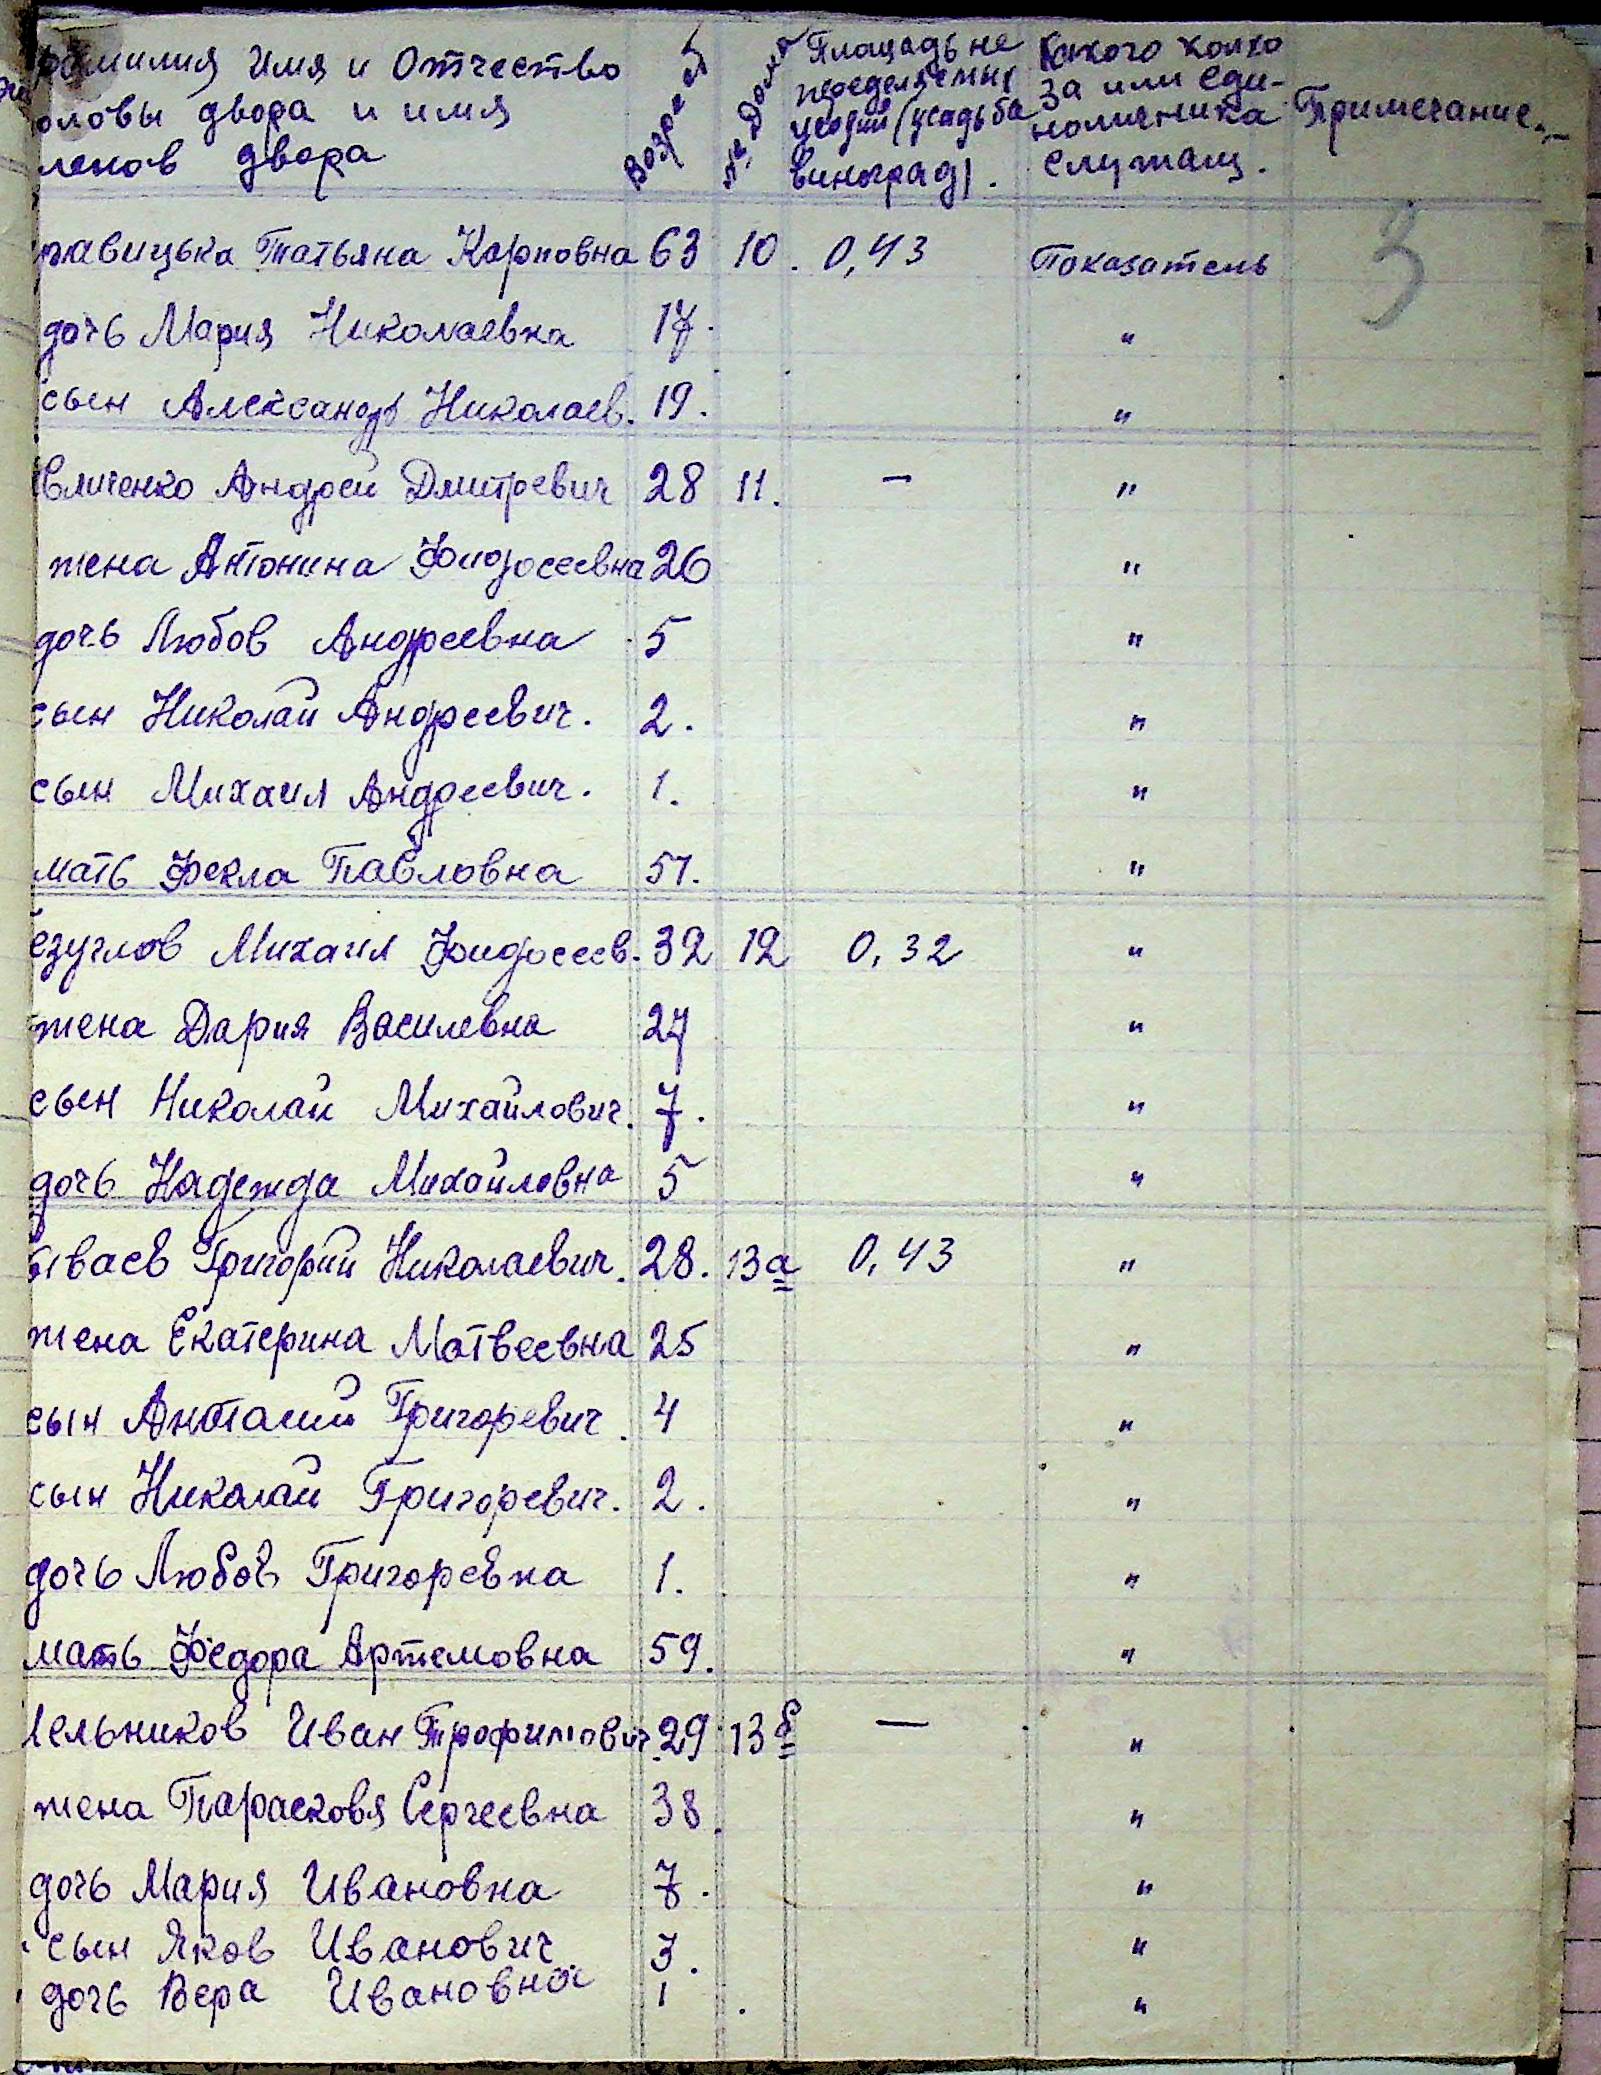 фамилия Имя и Отчество головы двора и имя членов двора | Возраст | № Дома | Площадь не переделяемых угодий (усадьба виноград). | Какого колхоза или единоличника служащ. | Примечание.
равицька Татьяна Карповна 63 10. 0,43 Показатель 3
дочь Мария Николаевна 17. "
сын Александр Николаев. 19. "
вличенко Андрей Дмитревич 28 11. — "
жена Антонина Фидосеевна 26 "
дочь Любов Андреевна 5 "
сын Николай Андреевич. 2. "
сын Михаил Андреевич. 1. "
мать Фекла Павловна 57. "
езуглов Михаил Фидосеев. 32 12 0,32 "
жена Дария Василевна 27 "
сын Николай Михайлович. 7. "
дочь Надежда Михайловна 5 "
ываев Григорий Николаевич. 28. 13а 0,43 "
жена Екатерина Матвеевна 25 "
сын Анатолий Григоревич. 4 "
сын Николай Григоревич. 2. "
дочь Любов Григоревна 1. "
мать Федора Артемовна 59. "
ельников Иван Трофимович. 29 13б — "
жена Парасковя Сергеевна 38. "
дочь Мария Ивановна 7. "
сын Яков Иванович 3. "
дочь Вера Ивановна 1. "